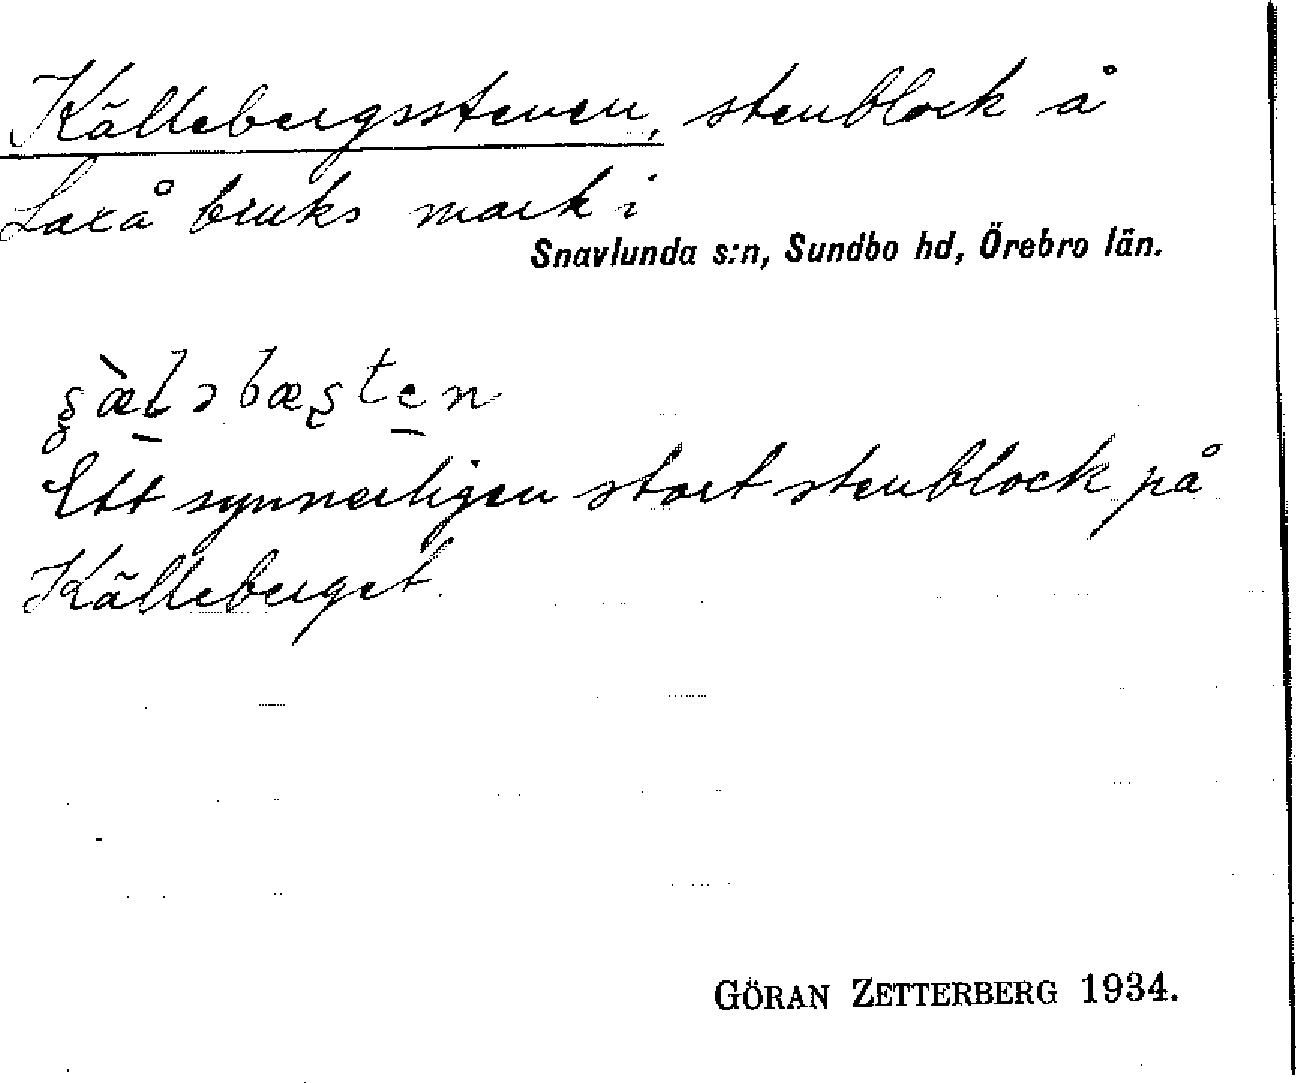 Källebergsstenen, stenblock å
Laxå bruks mark i
Snavlunda s:n, Sundbo hd, Örebro län.
Ett synnerligen stort stenblock på
Källeberget.
GÖRAN ZETTERBERG 1934.